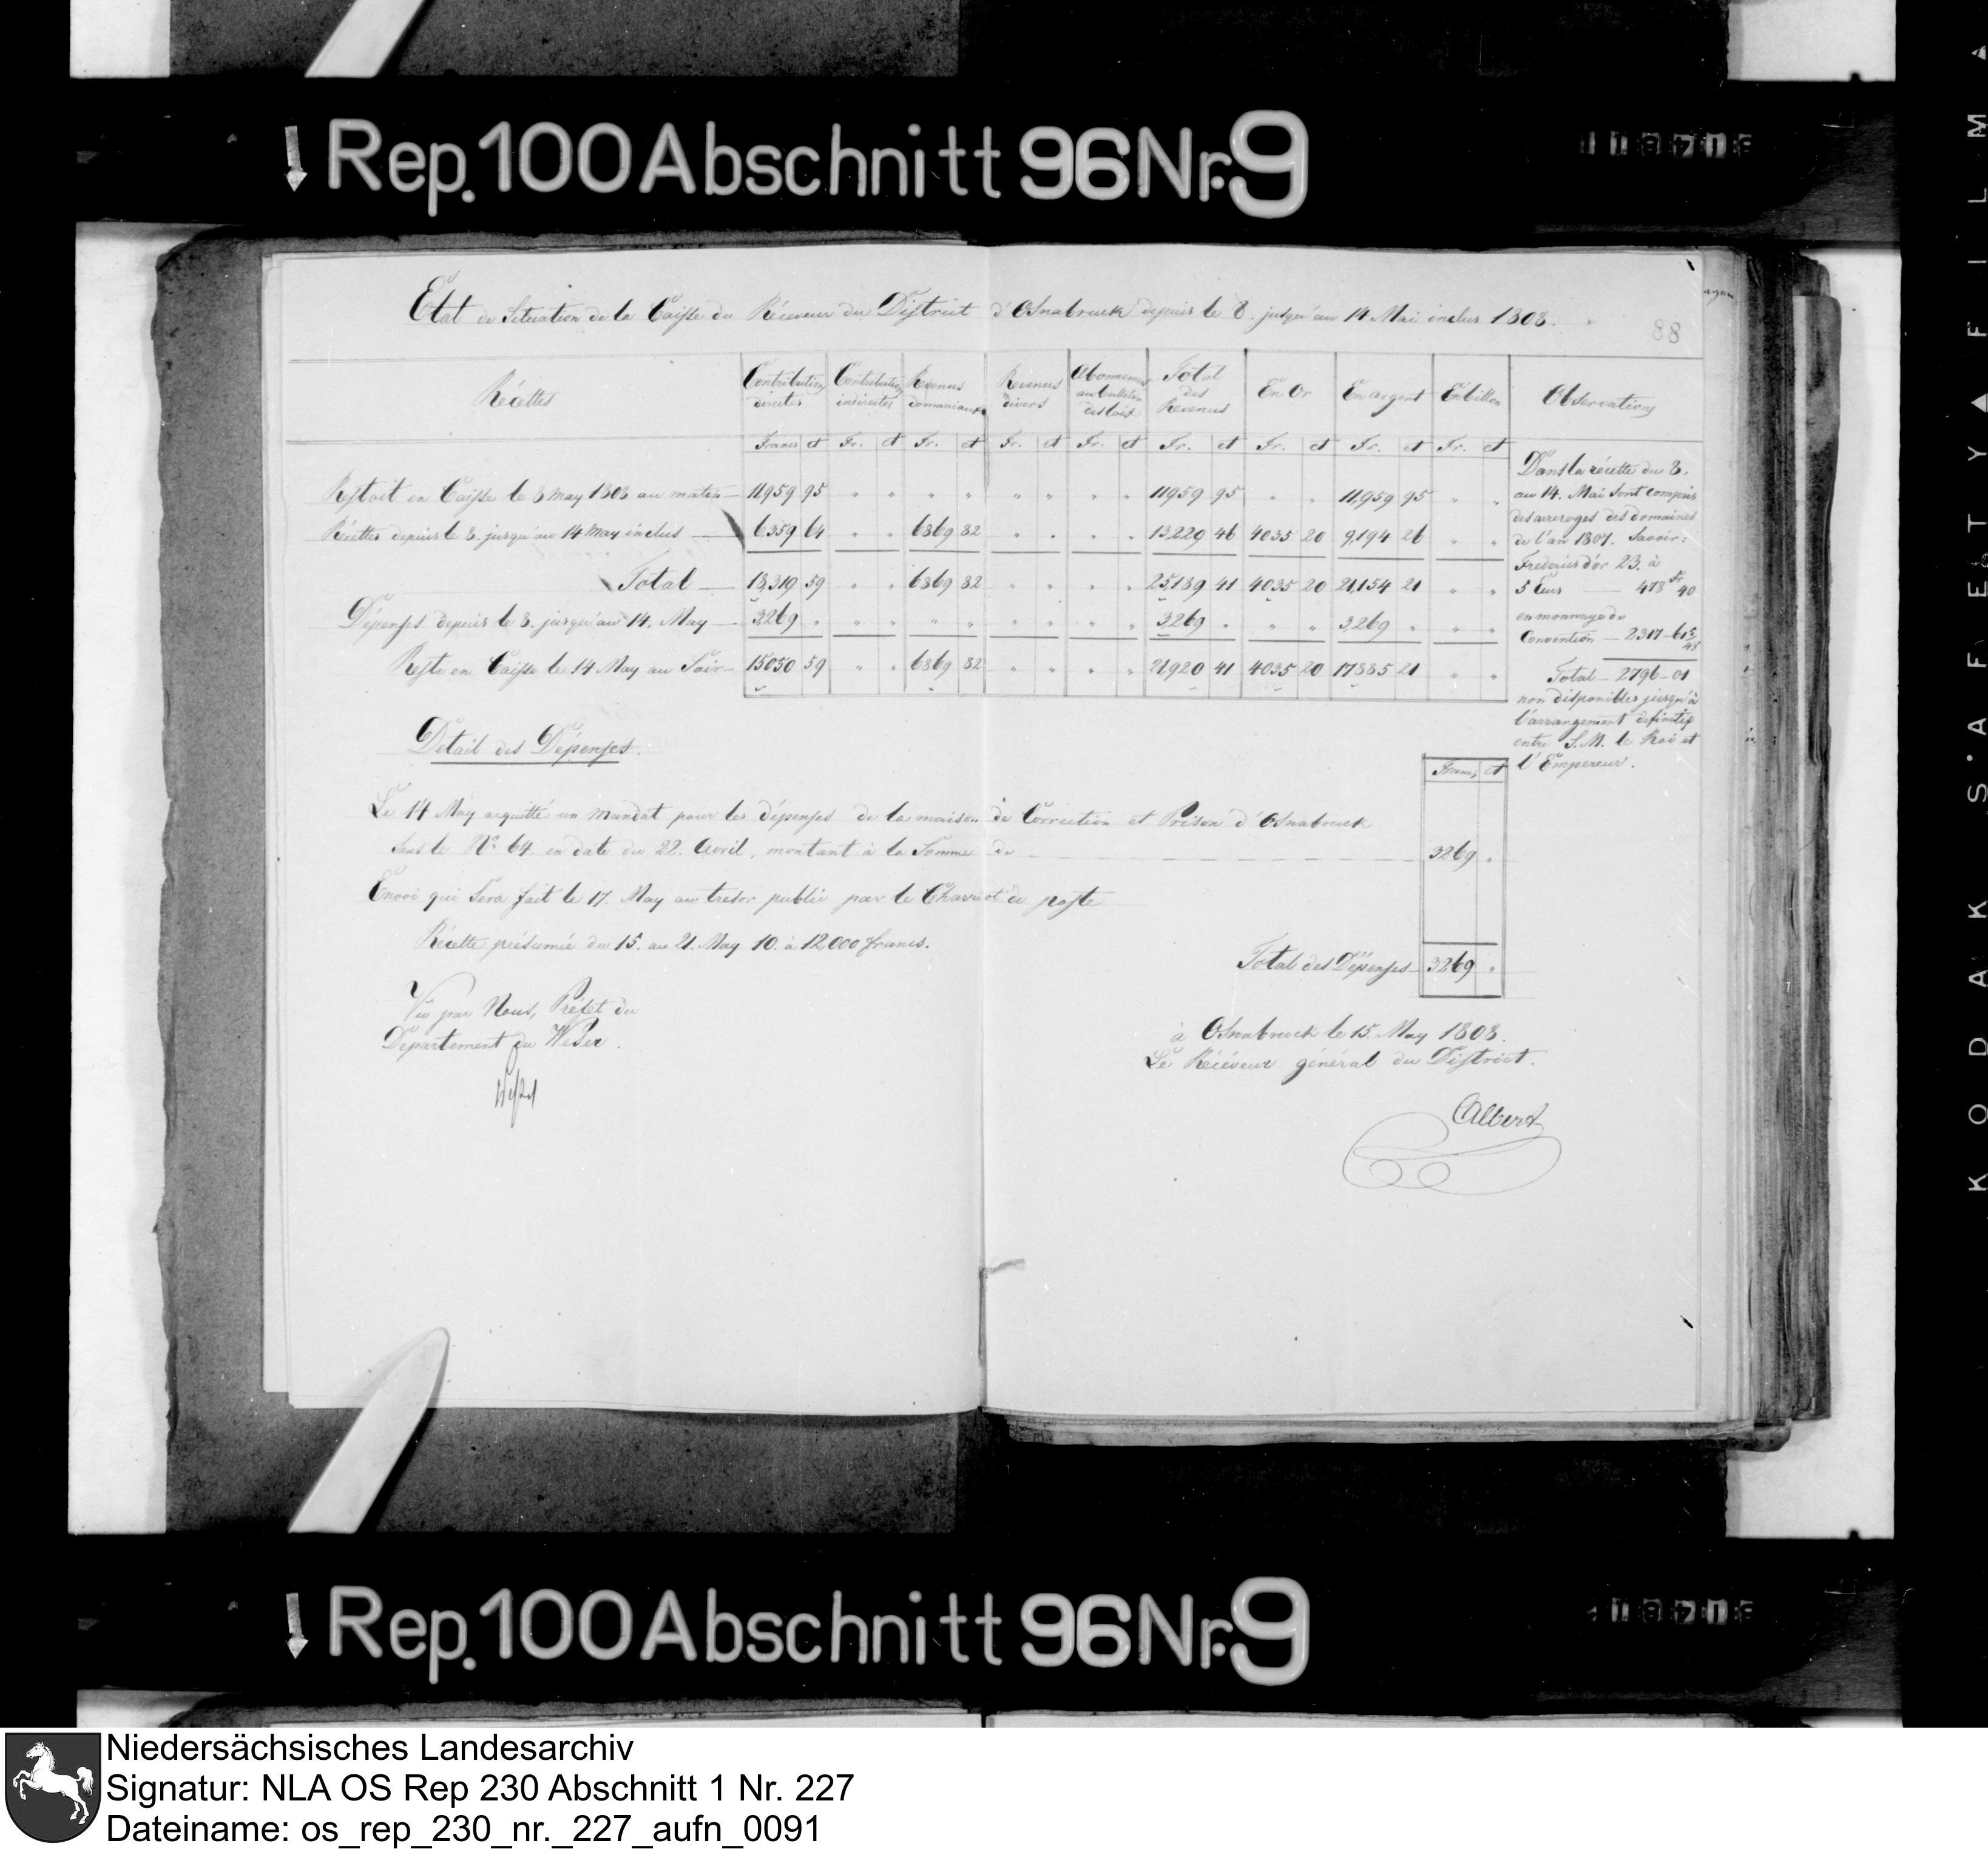 Rep. 100 Abschnitt 96 Nr. 9
Etat de Situation de la Caisse du Réceveur du District d'Osnabruck depuis le 8. jusqu'au 14 Mai inclus 1808.
88
Récettes | Contributions directes | Contributions indirectes | Revenus domaniaux | Revenus divers | Abonnement au bulletin des lois | Total des Revenus | En Or | En argent | En billon | Observations
Francs ct | Fr. ct | Fr. ct | Fr. ct | Fr. ct | Fr. ct | Fr. ct | Fr. ct | Fr. ct
Restoit en Caisse le 8 May 1808 au matin — 11,959 95 " " " " " " " " 11,959 95 " " 11,959 95 " "
Récettes depuis le 8. jusqu'au 14 May inclus — 6,359 64 " " 6869 82 " " " " 13,229 46 4035 20 9,194 26 " "
Total — 18,319 59 " " 6869 82 " " " " 25,189 41 4035 20 21,154 21 " "
Dépenses depuis le 8. jusqu'au 14. May — 3,269 " " " " " " " " " 3,269 " " " 3,269 " " "
Reste en Caisse le 14 May au Soir — 15050 59 " " 6869 82 " " " " 21,920 41 4035 20 17885 21 " "
Dans la récette du 8.
au 14. Mai sont compris
des arrerages des domaines
de l'an 1807. Savoir:
Frederics d'or 23. à
5 Ecus — 478 Fr 40
en monnoye de
Convention — 2317-61 5/48
Total — 2796-01
non disponibles jusqu'à
l'arrangement definitif
entre S.M. le Roi et
l'Empereur.
Detail des Dépenses.
Francs ct
Le 14 May acquitté un mandat pour les dépenses de la maison de Correction et Prison d'Osnabruck
sous le No. 64. en date du 22. Avril, montant à la Somme de — 3269 "
Envoi qui Sera fait le 17. May au tresor public par le Charriot de poste
Récette présumée du 15. au 21. May 10. à 12,000 francs.
Total des Dépenses — 3269 "
Vu par Nous, Préfet du
Departement du Weser.
à Osnabruck le 15. May 1808.
Le Réceveur général du District.
Albert
Rep. 100 Abschnitt 96 Nr. 9
KODAK SAFETY FILM
Niedersächsisches Landesarchiv
Signatur: NLA OS Rep 230 Abschnitt 1 Nr. 227
Dateiname: os_rep_230_nr._227_aufn_0091